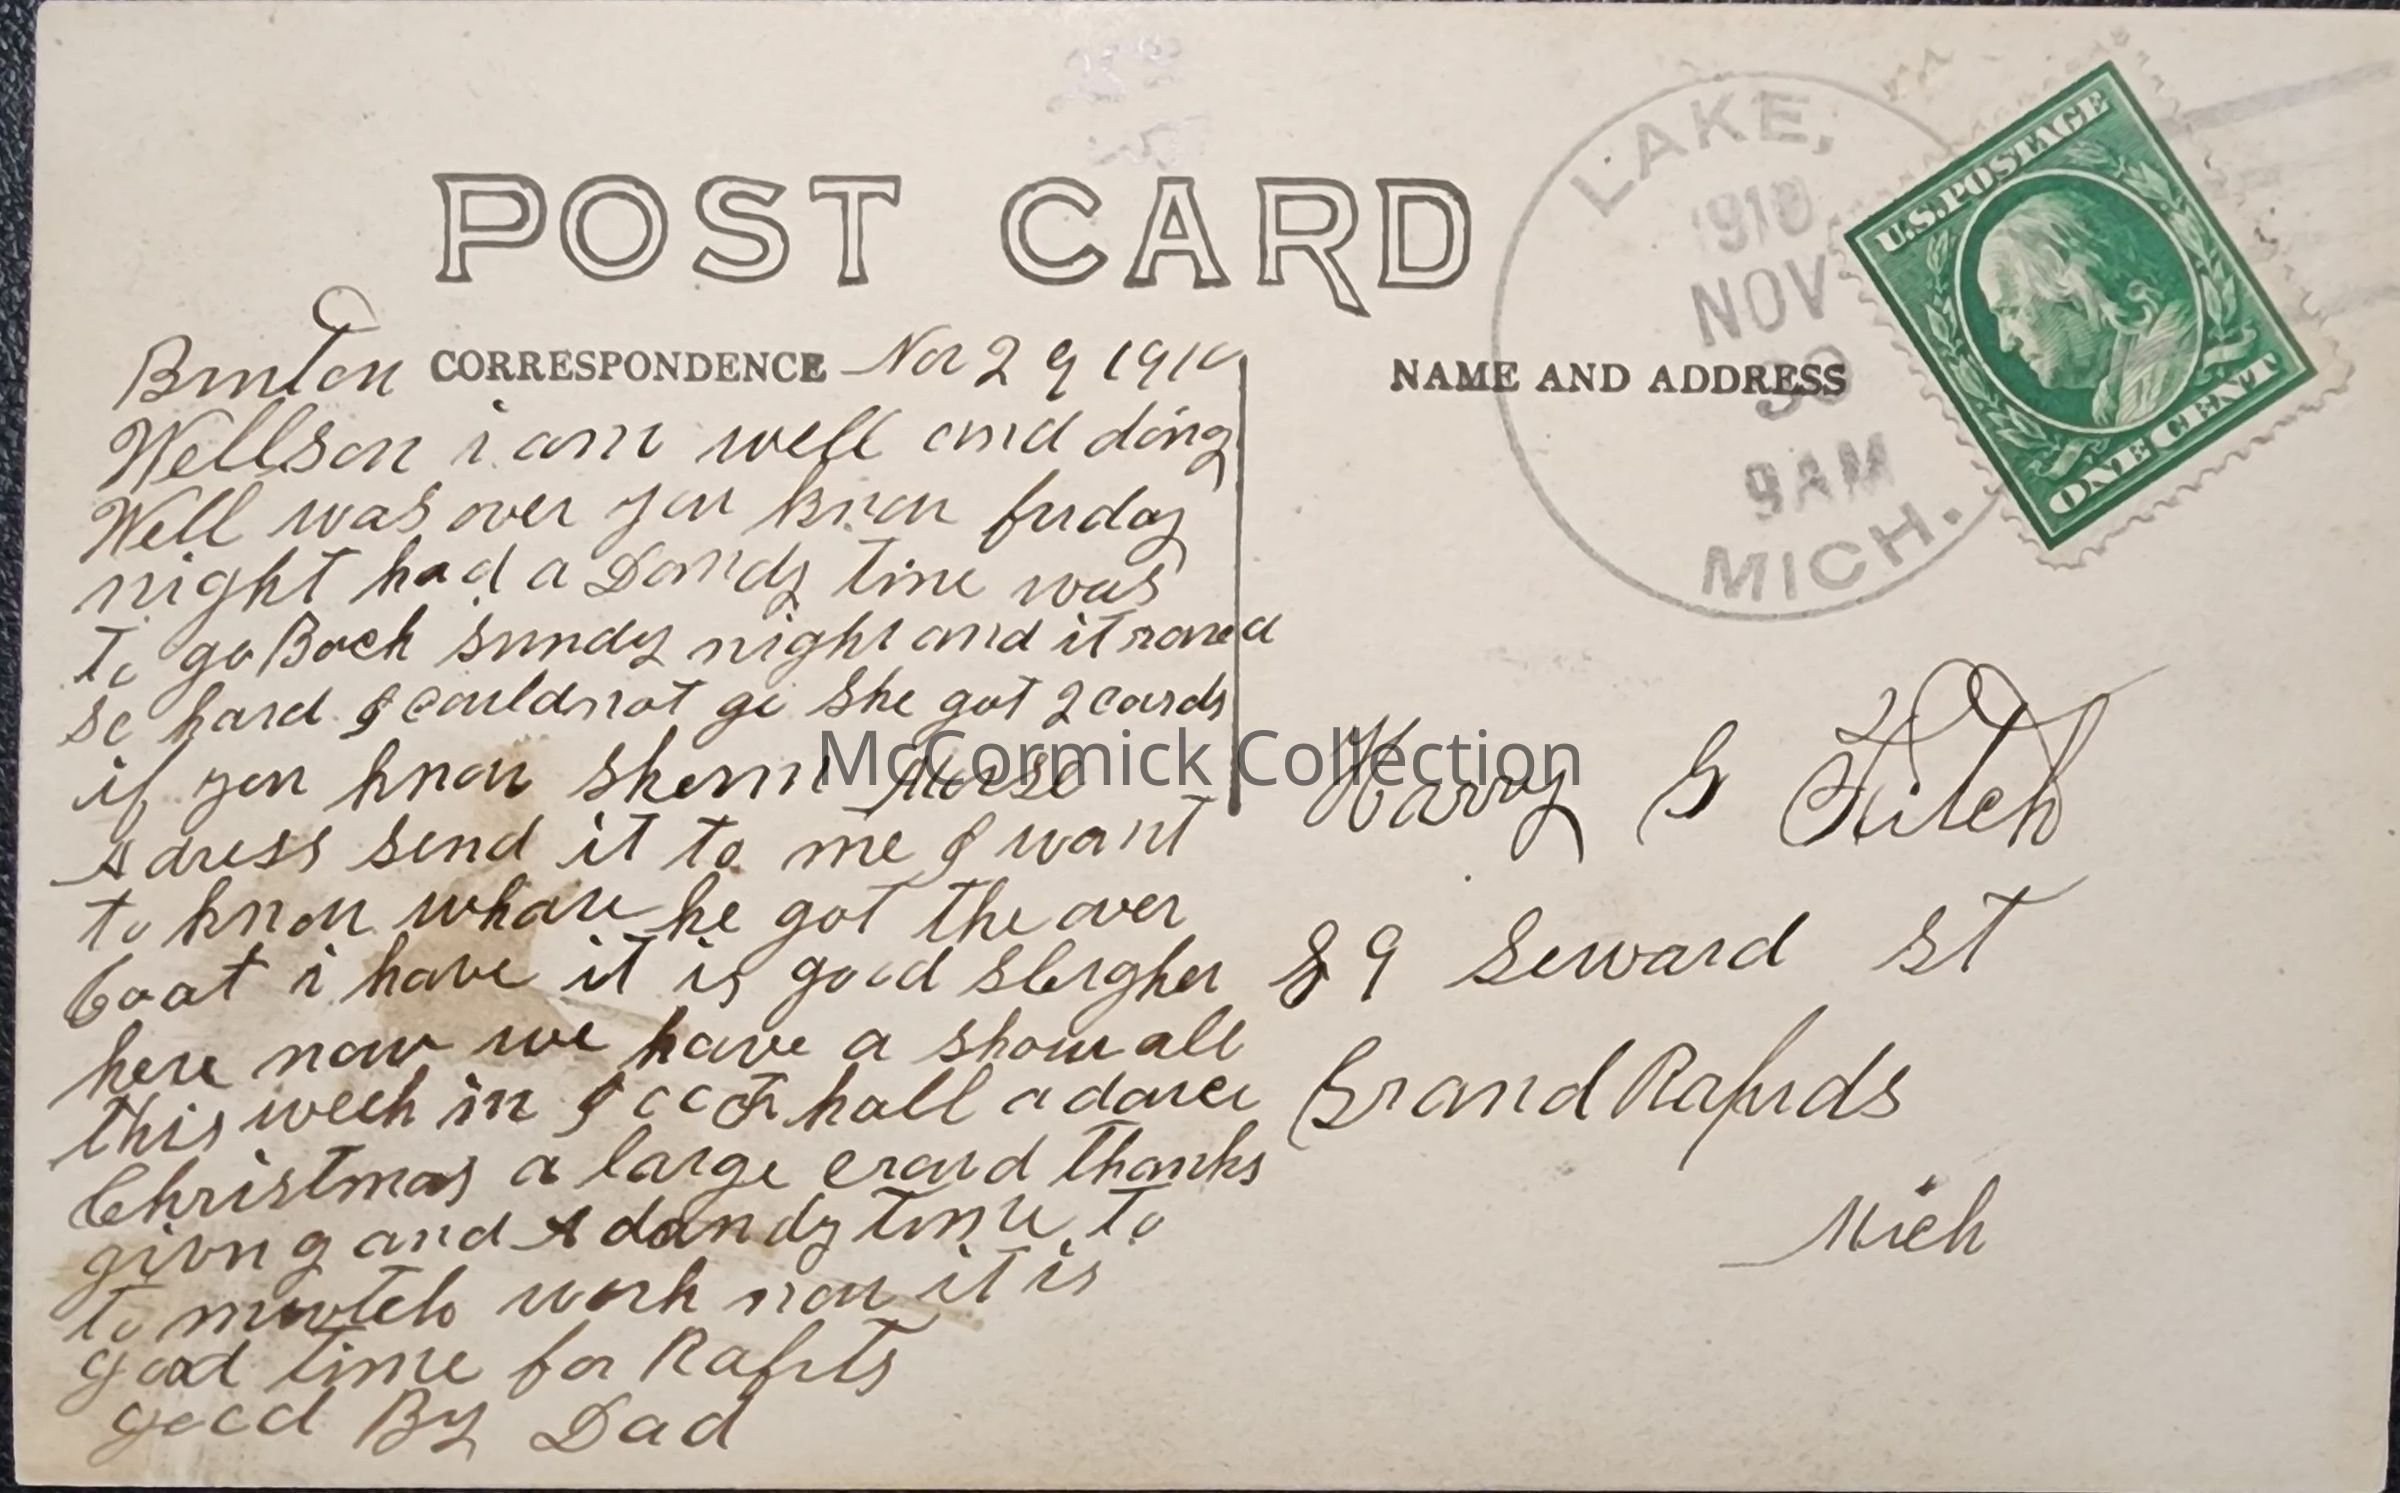 POST CARD
LAKE,
1910
NOV
30
9AM
MICH.
U.S. POSTAGE
ONE CENT
CORRESPONDENCE
NAME AND ADDRESS
Brinton Nov 29 1910
Well son i am well and doing
Well was over you know friday
night had a Dandy time was
to go Back sundy night and it raned
so hard I could not go She got 2 cards
if you know
Adress send it to me I want
to know whare he got the over
Coat i have it is good sleigher
here now we have a show all
this week in hall a dance
Christmas a large crowd thanks
giving and A dandy time to
to mutch work now it is
good time for Rapits
good By Dad
Harry G Fitch
89 Seward St
Grand Rapids
Mich
McCormick Collection